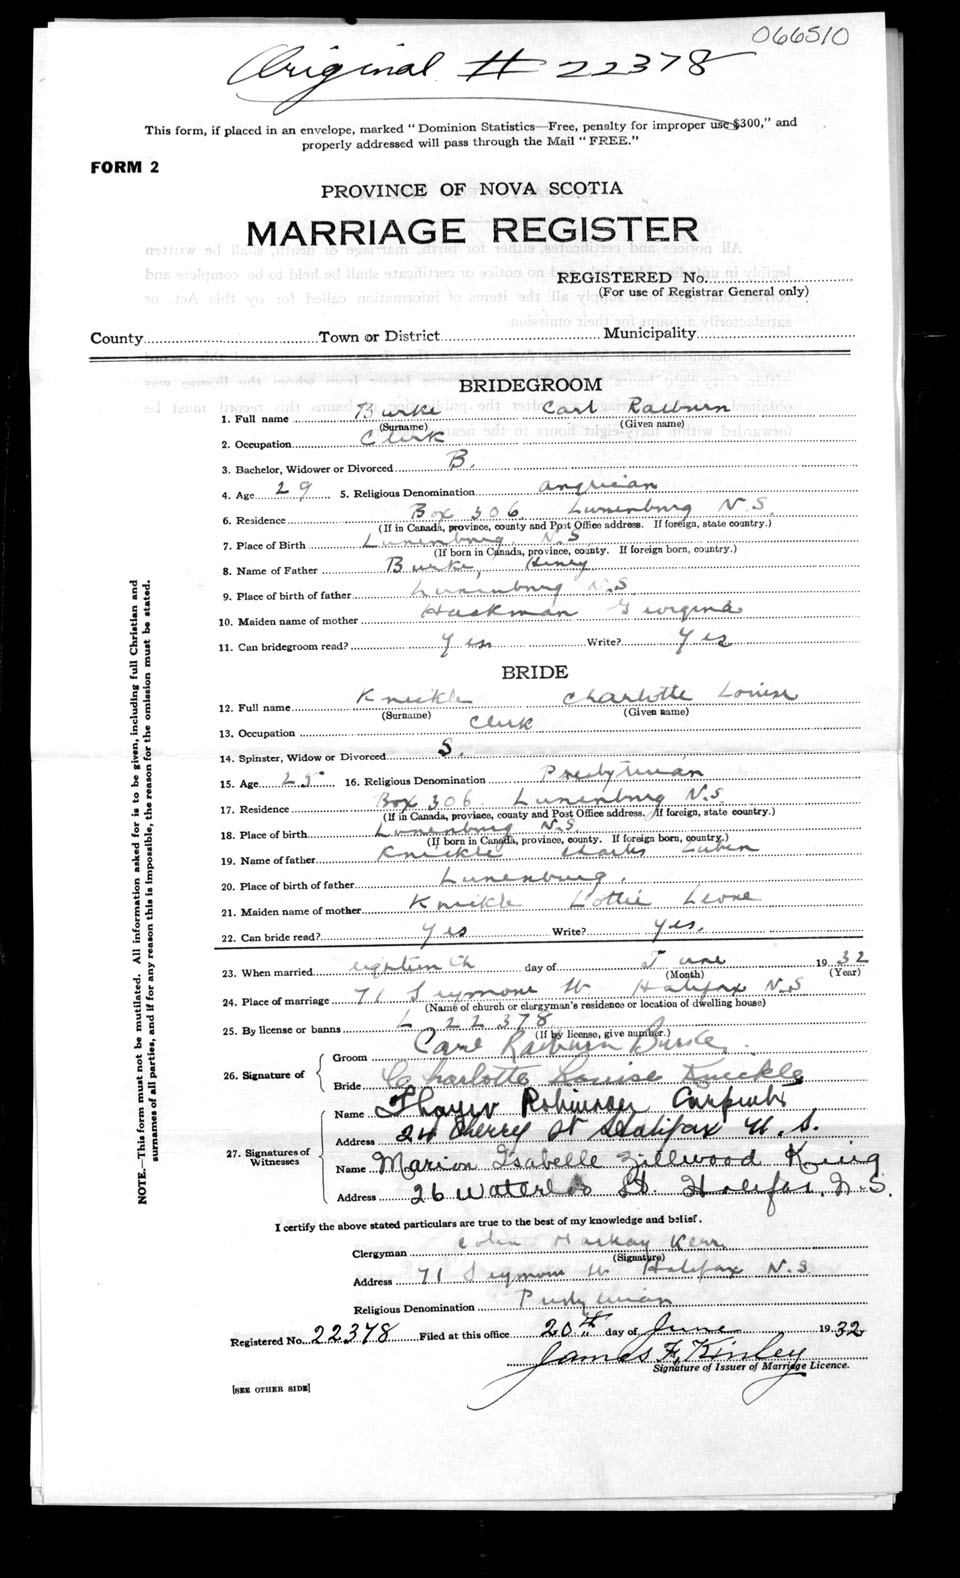 066510
Original # 22378
This form, if placed in an envelope, marked "Dominion Statistics—Free, penalty for improper use $300," and
properly addressed will pass through the Mail "FREE."
FORM 2
PROVINCE OF NOVA SCOTIA
MARRIAGE REGISTER
REGISTERED No.
(For use of Registrar General only)
County Town or District Municipality
BRIDEGROOM
1. Full name Burke Carl Raeburn
(Surname) (Given name)
2. Occupation Clerk
3. Bachelor, Widower or Divorced B.
4. Age 29 5. Religious Denomination Anglican
6. Residence Box 306 Lunenburg N.S.
(If in Canada, province, county and Post Office address. If foreign, state country.)
7. Place of Birth Lunenburg N.S.
(If born in Canada, province, county. If foreign born, country.)
8. Name of Father Burke, Henry
9. Place of birth of father Lunenburg N.S.
10. Maiden name of mother Georgina
11. Can bridegroom read? Yes Write? Yes
BRIDE
12. Full name Knickle Charlotte Louise
(Surname) (Given name)
13. Occupation Clerk
14. Spinster, Widow or Divorced S.
15. Age 25 16. Religious Denomination Presbyterian
17. Residence Box 306. Lunenburg N.S.
(If in Canada, province, county and Post Office address. If foreign, state country.)
18. Place of birth Lunenburg N.S.
(If born in Canada, province, county. If foreign born, country.)
19. Name of father Knickle Charles
20. Place of birth of father Lunenburg.
21. Maiden name of mother Knickle Lottie Leone
22. Can bride read? Yes Write? Yes.
23. When married eighteenth day of June 1932
(Month) (Year)
24. Place of marriage 71 Seymour St Halifax N.S
(Name of church or clergyman's residence or location of dwelling house)
25. By license or banns L 22378
(If by license, give number.)
26. Signature of
Groom Carl Raeburn Burke.
Bride Charlotte Louise Knickle
27. Signatures of Witnesses
Name Thayer Robinson Carpenter
Address 24 Cherry St Halifax N.S.
Name Marion Isabelle Zillwood King
Address 26 Waterloo St. Halifax, N.S.
I certify the above stated particulars are true to the best of my knowledge and belief.
Clergyman Colin Mackay Kerr
(Signature)
Address 71 Seymour St Halifax N.S.
Religious Denomination Presbyterian
Registered No. 22378 Filed at this office 20th day of June 1932
James F. Kinley
Signature of Issuer of Marriage Licence.
[SEE OTHER SIDE]
NOTE.—This form must not be mutilated. All information asked for is to be given, including full Christian and
surnames of all parties, and if for any reason this is impossible, the reason for the omission must be stated.